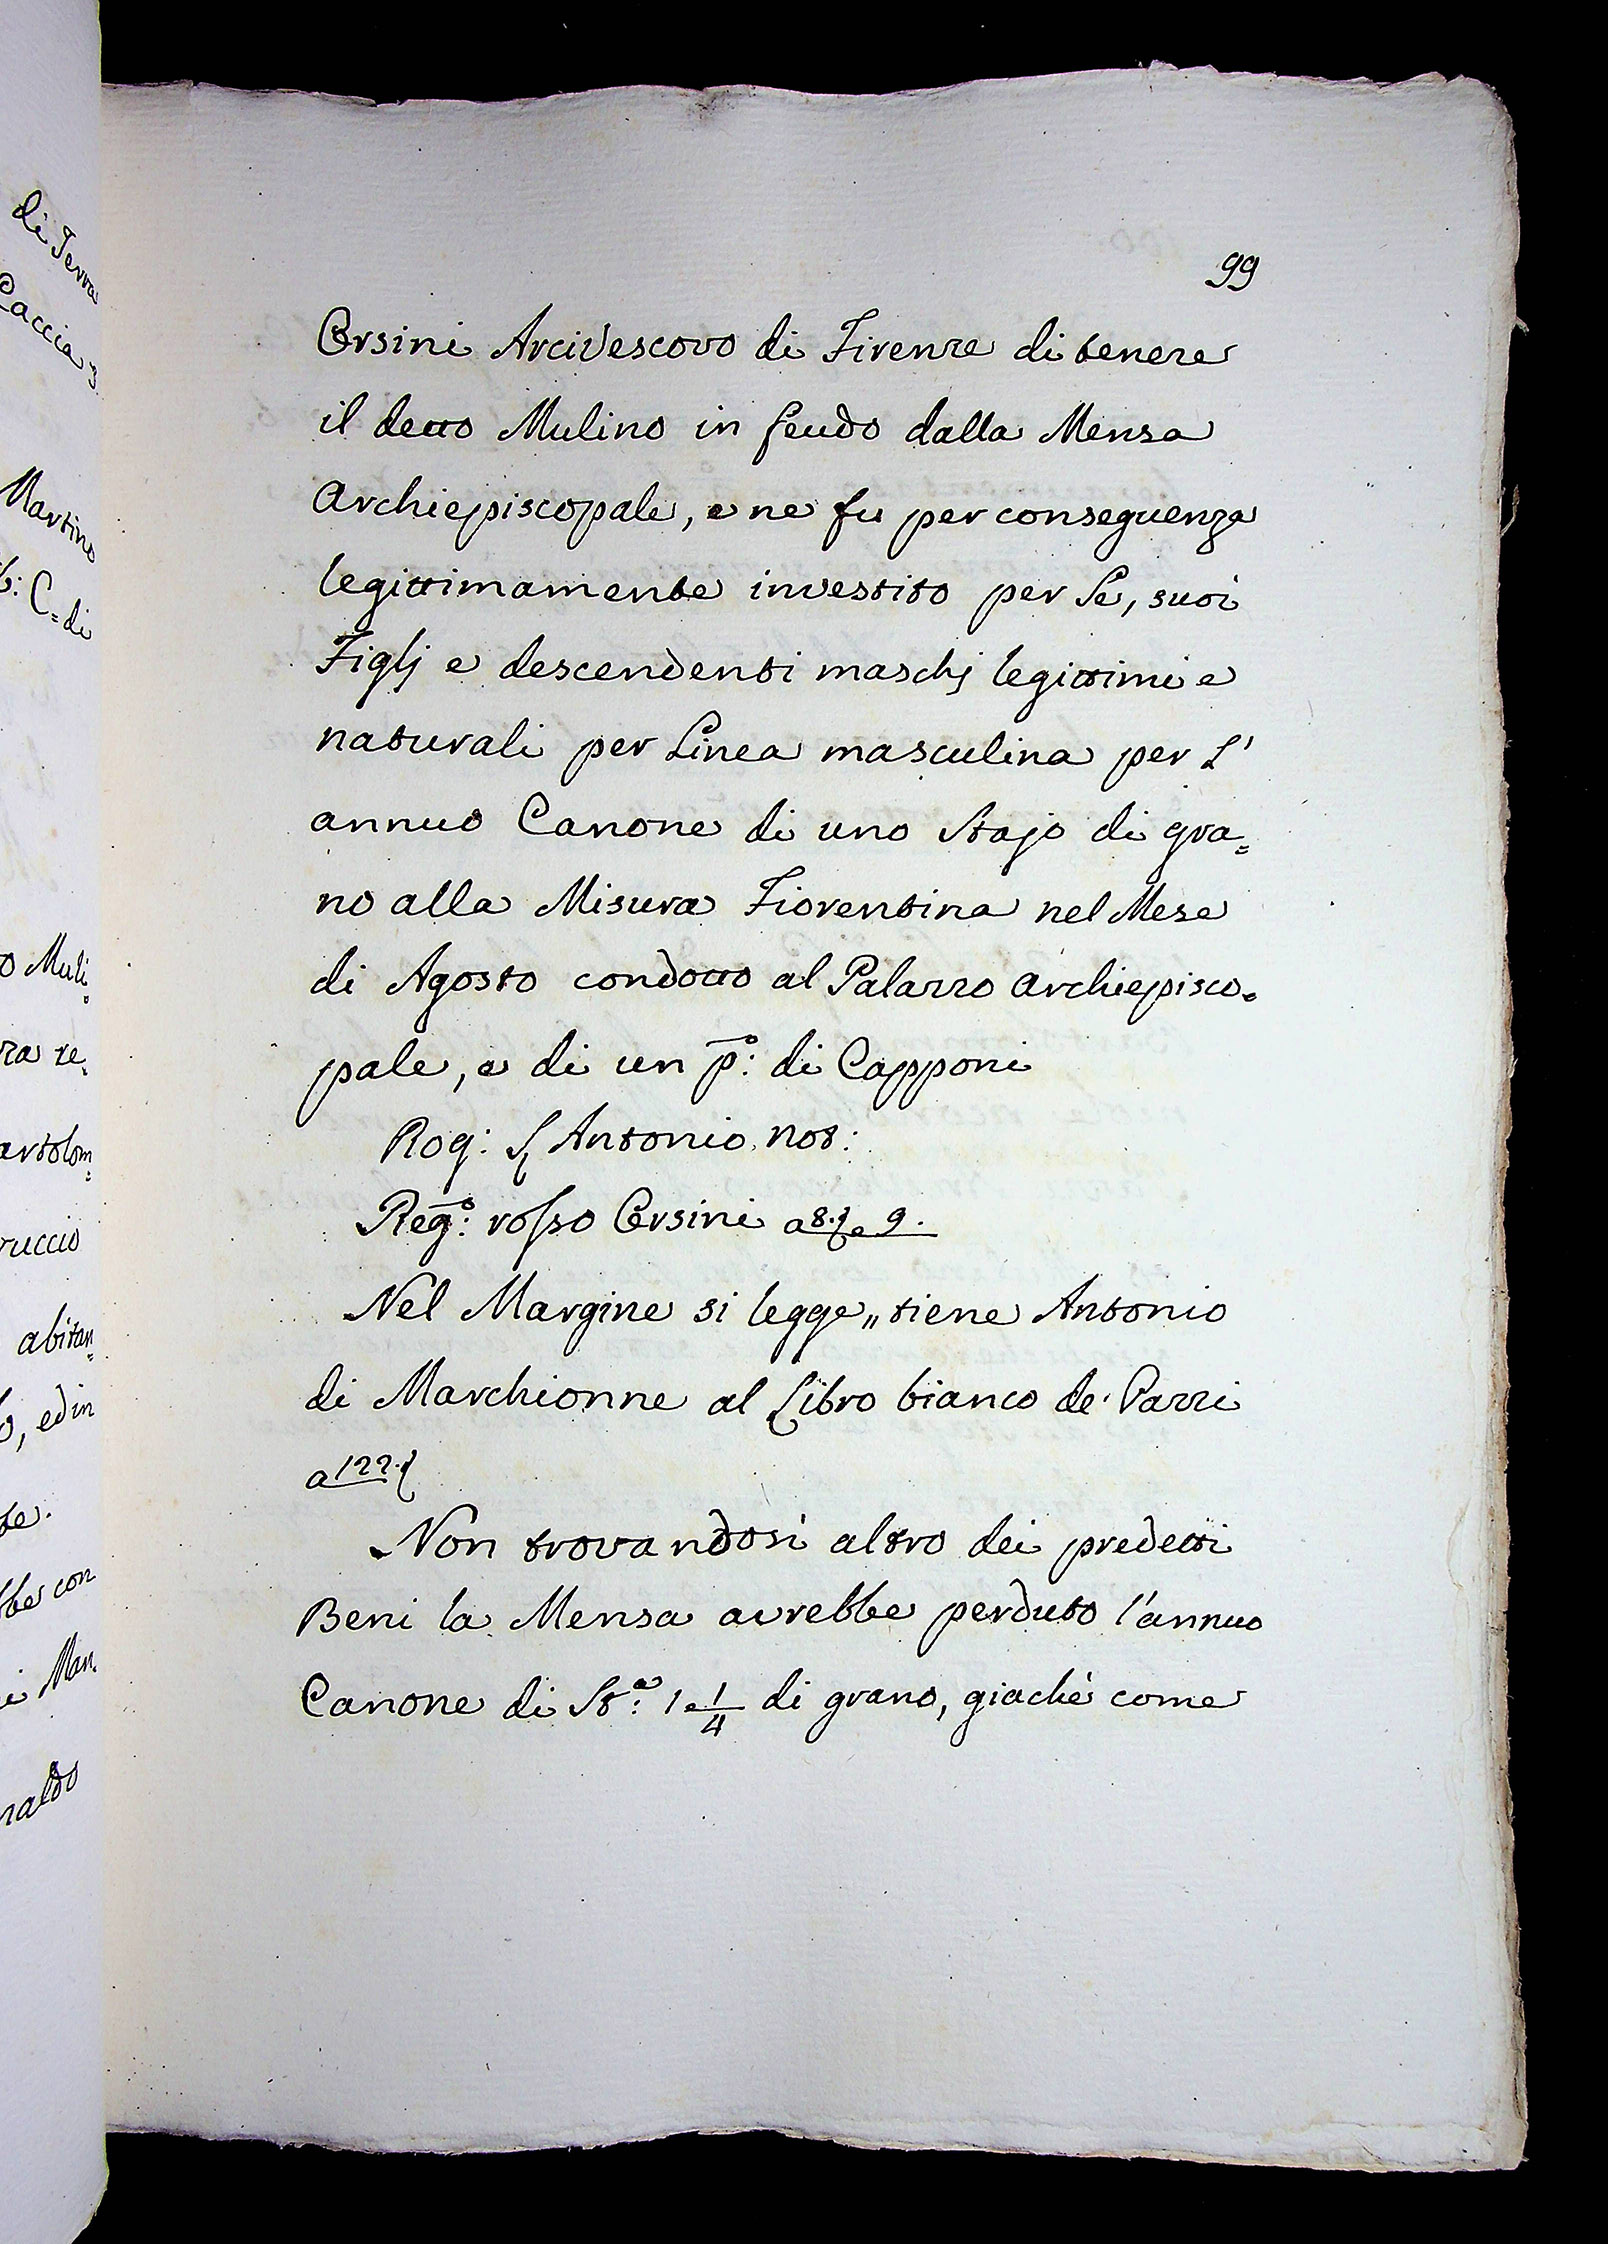 99
Orsini Arcivescovo di Firenze di tenere
il detto Mulino in feudo dalla Mensa
Archiepiscopale, e ne fu per conseguenza
legittimamente investito per Se, suoi
Figlj e descendenti maschj legittimi e
naturali per Linea masculina per L'
annuo Canone di uno Stajo di gra=
no alla Misura Fiorentina nel Mese
di Agosto condotto al Palazzo Archiepisco=
pale, e di un p.º: di Capponi
Rog: S. Antonio not:
Reg.º: rosso Orsini a 8. e 9.
Nel Margine si legge „ tiene Antonio
di Marchionne al Libro bianco de' Pazzi
a 122.
Non trovandosi altro dei predetti
Beni la Mensa avrebbe perduto l'annuo
Canone di St.ª: 1 e 1/4 di grano, giachè come
di Terra
Caccia
Martino
C= di
o Muli=
ra re=
artolom=
ruccio
abitan=
o, ed in
te.
be con
i Man=
naldo